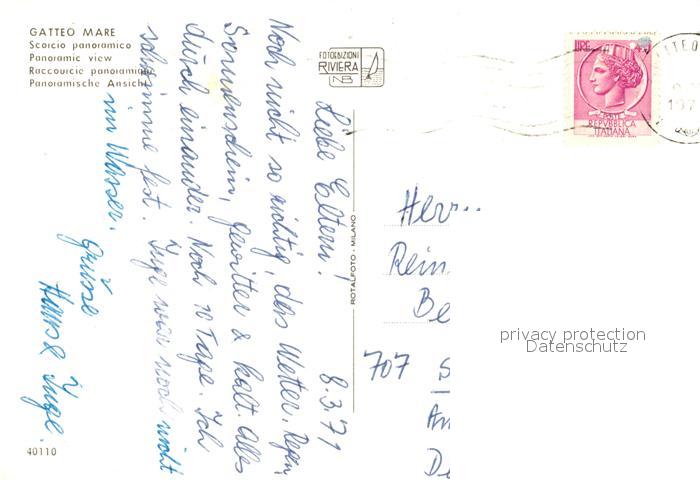 GATTEO MARE
Scorcio panoramico
Panoramic view
Raccourcie panoramique
Panoramische Ansicht
FOTOEDIZIONI
RIVIERA
NB
LIRE
POSTE
REPUBBLICA
ITALIANA
Liebe Eltern! 8.3.71
Noch nicht so richtig, das Wetter. Regen,
Sonnenschein, Gewitter & kalt. Alles
durch einander. Noch 10 Tage. Ich
schwimme fest. Inge war noch nicht
im Wasser.
Grüsse
Hans & Inge.
ROTALFOTO - MILANO
Herr
Rein
Be
707 S
An
De
privacy protection
Datenschutz
40110